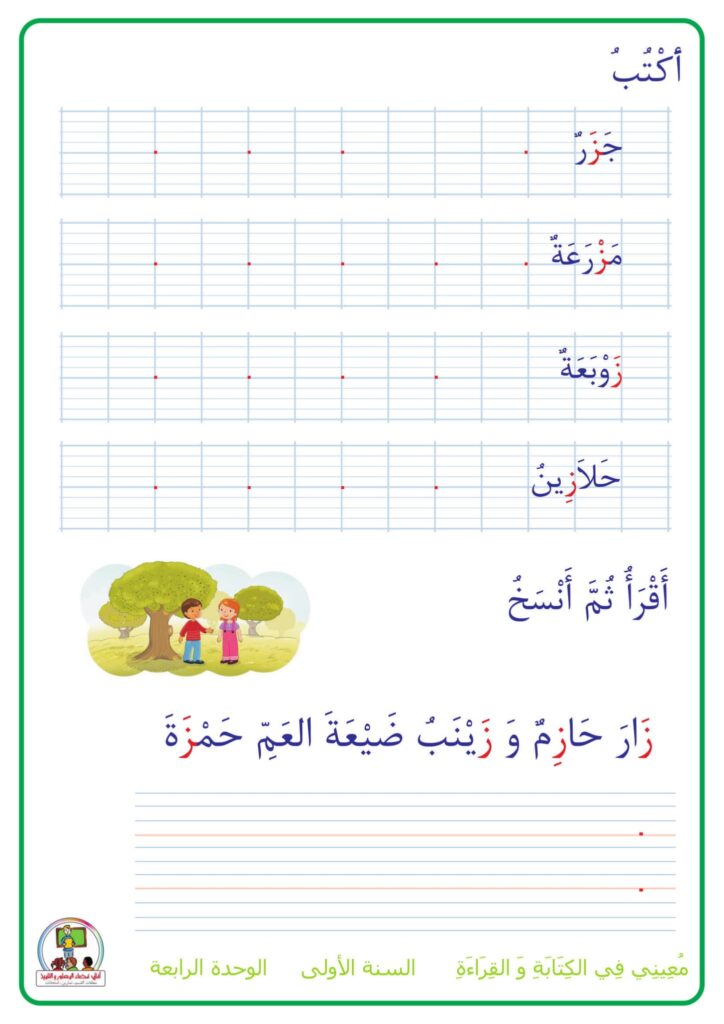 أكْتُبُ
جَزَرٌ
مَزْرَعَةٌ
زَوْبَعَةٌ
حَلاَزِينُ
أَقْرَأُ ثُمَّ أَنْسَخُ
زَارَ حَازِمٌ وَ زَيْنَبُ ضَيْعَةَ العَمِّ حَمْزَةَ
مُعِينِي فِي الكِتَابَةِ وَ القِرَاءَةِ السنة الأولى الوحدة الرابعة